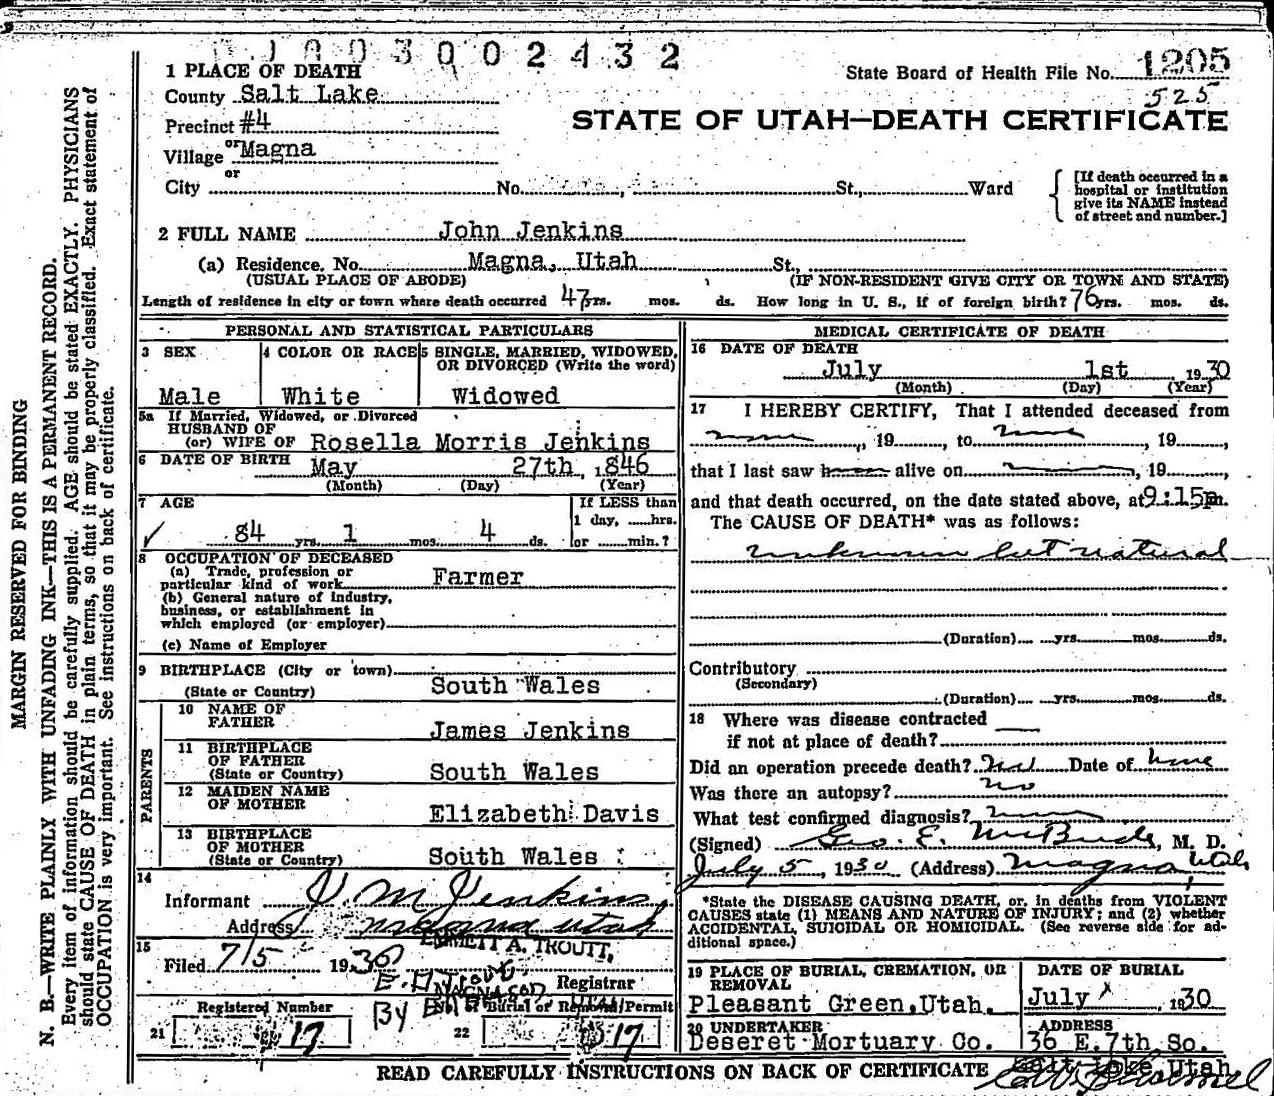 MARGIN RESERVED FOR BINDING
N. B.—WRITE PLAINLY WITH UNFADING INK—THIS IS A PERMANENT RECORD.
Every item of information should be carefully supplied. AGE should be stated EXACTLY. PHYSICIANS
should state CAUSE OF DEATH in plain terms, so that it may be properly classified. Exact statement of
OCCUPATION is very important. See instructions on back of certificate.
3002432
1 PLACE OF DEATH
State Board of Health File No. 1205
County Salt Lake
525
Precinct #4
STATE OF UTAH—DEATH CERTIFICATE
or
Village Magna
or
City No. St., Ward
[If death occurred in a
hospital or institution
give its NAME instead
of street and number.]
2 FULL NAME John Jenkins
(a) Residence, No. Magna, Utah St.,
(USUAL PLACE OF ABODE) (IF NON-RESIDENT GIVE CITY OR TOWN AND STATE)
Length of residence in city or town where death occurred 47 yrs. mos. ds. How long in U. S., if of foreign birth? 76 yrs. mos. ds.
PERSONAL AND STATISTICAL PARTICULARS
3 SEX
Male
4 COLOR OR RACE
White
5 SINGLE, MARRIED, WIDOWED,
OR DIVORCED (Write the word)
Widowed
5a If Married, Widowed, or Divorced
HUSBAND OF
(or) WIFE OF Rosella Morris Jenkins
6 DATE OF BIRTH May 27th, 1846
(Month) (Day) (Year)
7 AGE
If LESS than
1 day, hrs.
84 yrs. 1 mos. 4 ds. or min.?
8 OCCUPATION OF DECEASED
(a) Trade, profession or
particular kind of work Farmer
(b) General nature of industry,
business, or establishment in
which employed (or employer)
(c) Name of Employer
9 BIRTHPLACE (City or town)
(State or Country) South Wales
PARENTS
10 NAME OF
FATHER James Jenkins
11 BIRTHPLACE
OF FATHER
(State or Country) South Wales
12 MAIDEN NAME
OF MOTHER Elizabeth Davis
13 BIRTHPLACE
OF MOTHER
(State or Country) South Wales
14
Informant J. M. Jenkins
Address Magna Utah
15
Filed 7/5 1930
EMMETT A. TROUTT,
Registrar
By
Registered Number
No. of Burial or Removal Permit
21 17
22 17
MEDICAL CERTIFICATE OF DEATH
16 DATE OF DEATH
July 1st 1930
(Month) (Day) (Year)
17 I HEREBY CERTIFY, That I attended deceased from
none, 19, to none, 19,
that I last saw h alive on, 19,
and that death occurred, on the date stated above, at 9:15p m.
The CAUSE OF DEATH* was as follows:
unknown but natural
(Duration) yrs. mos. ds.
Contributory
(Secondary)
(Duration) yrs. mos. ds.
18 Where was disease contracted
if not at place of death?
Did an operation precede death? no Date of none
Was there an autopsy? no
What test confirmed diagnosis? none
(Signed) Geo. E. McBride, M. D.
July 5, 1930 (Address) Magna, Utah
*State the DISEASE CAUSING DEATH, or, in deaths from VIOLENT
CAUSES state (1) MEANS AND NATURE OF INJURY; and (2) whether
ACCIDENTAL, SUICIDAL OR HOMICIDAL. (See reverse side for ad-
ditional space.)
19 PLACE OF BURIAL, CREMATION, OR
REMOVAL
Pleasant Green, Utah.
DATE OF BURIAL
July 1930
20 UNDERTAKER
Deseret Mortuary Co.
ADDRESS
36 E. 7th So.
Salt Lake Utah
READ CAREFULLY INSTRUCTIONS ON BACK OF CERTIFICATE